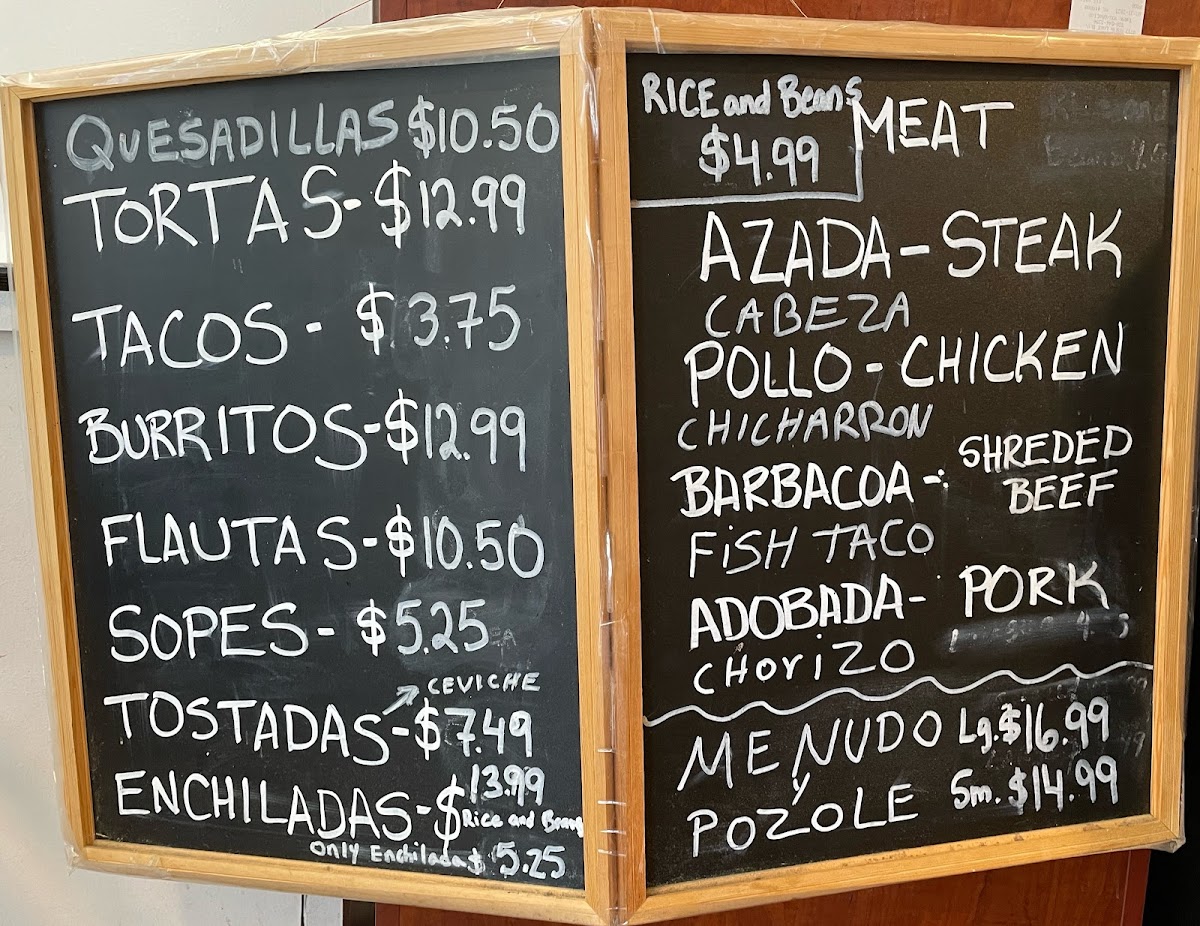 QUESADILLAS $10.50
TORTAS-$12.99
TACOS- $3.75
BURRITOS-$12.99
FLAUTAS-$10.50
SOPES- $5.25
CEVICHE
TOSTADAS-$7.49
ENCHILADAS-$13.99
Rice and Beans
Only Enchilada $5.25
RICE and Beans
$4.99
MEAT
AZADA-STEAK
CABEZA
POLLO-CHICKEN
CHICHARRON
BARBACOA-: SHREDED
BEEF
FiSH TACO
ADOBADA- PORK
CHORIZO
MENUDO Lg.$16.99
y
POZOLE Sm.$14.99